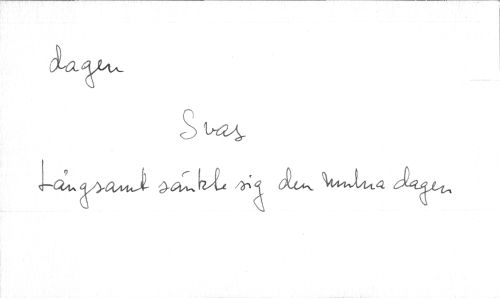 dagen
Svas
Långsamt sänkte sig den mulna dagen